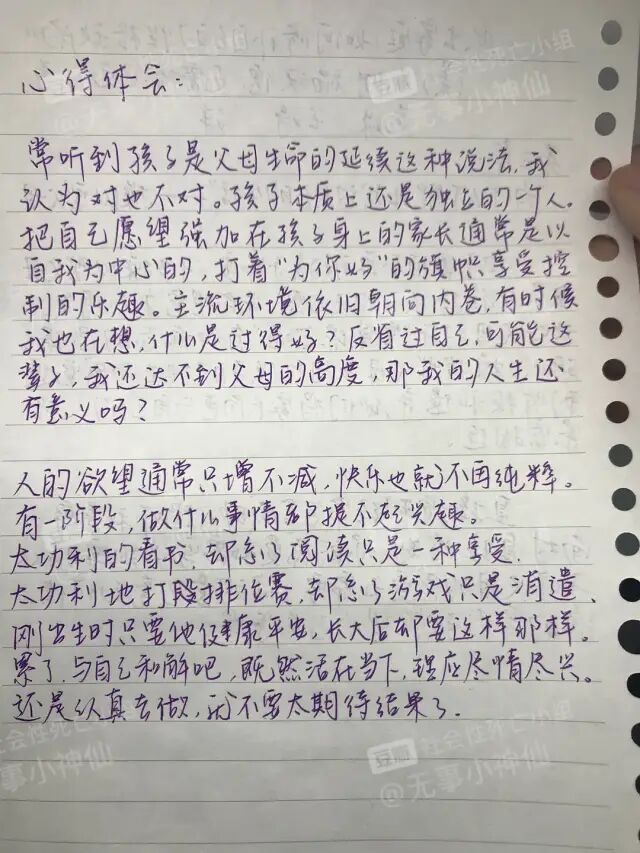 心得体会：
常听到孩子是父母生命的延续这种说法，我
认为对也不对。孩子本质上还是独立的一个人。
把自己愿望强加在孩子身上的家长通常是以
自我为中心的，打着“为你好”的旗帜享受控
制的乐趣。主流环境依旧朝向内卷，有时候
我也在想，什么是过得好？反省过自己，可能这
辈子，我还达不到父母的高度，那我的人生还
有意义吗？
人的欲望通常只增不减，快乐也就不再纯粹。
有一阶段，做什么事情都提不起兴趣。
太功利的看书，却忘了阅读只是一种享受.
太功利地打段排位赛，却忘了游戏只是消遣、
刚出生时只要他健康平安，长大后却要这样那样。
累了，与自己和解吧，既然活在当下，理应尽情尽兴。
还是认真去做，就不要太期待结果了.
豆瓣 社会性死亡小组
@无事小神仙
豆瓣 社会性死亡小组
@无事小神仙